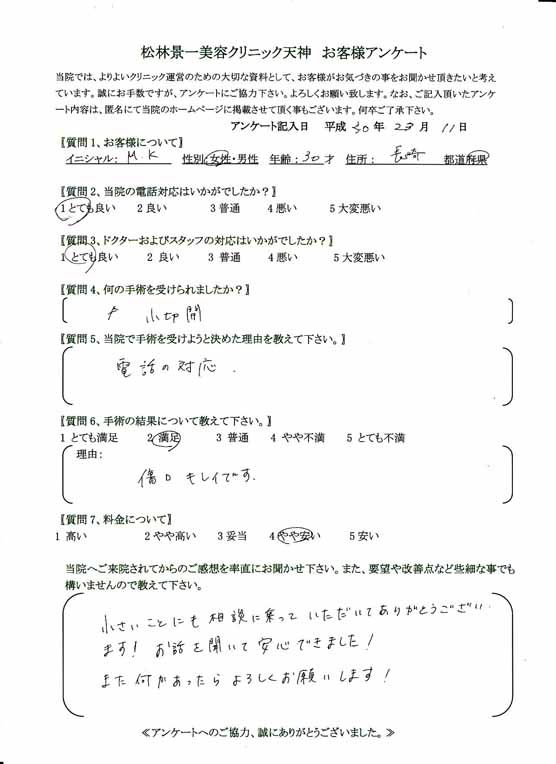 松林景一美容クリニック天神　お客様アンケート
当院では、よりよいクリニック運営のための大切な資料として、お客様がお気づきの事をお聞かせ頂きたいと考え
ています。誠にお手数ですが、アンケートにご協力下さい。よろしくお願い致します。なお、ご記入頂いたアンケ
ート内容は、匿名にて当院のホームページに掲載させて頂く事もございます。何卒ご了承下さい。
アンケート記入日　平成 30 年 月 11 日
〖質問1、お客様について〗
イニシャル: M K　性別:女性・男性　年齢:30 才　住所: 長崎　都道府県
〖質問2、当院の電話対応はいかがでしたか？〗
1 とても良い　2 良い　3 普通　4 悪い　5 大変悪い
〖質問3、ドクターおよびスタッフの対応はいかがでしたか？〗
1 とても良い　2 良い　3 普通　4 悪い　5 大変悪い
〖質問4、何の手術を受けられましたか？〗
小切開
〖質問5、当院で手術を受けようと決めた理由を教えて下さい。〗
電話の対応.
〖質問6、手術の結果について教えて下さい。〗
1 とても満足　2 満足　3 普通　4 やや不満　5 とても不満
理由:
傷口 キレイです.
〖質問7、料金について〗
1 高い　2 やや高い　3 妥当　4 やや安い　5 安い
当院へご来院されてからのご感想を率直にお聞かせ下さい。また、要望や改善点など些細な事でも
構いませんので教えて下さい。
小さいことにも相談に乗っていただいてありがとうござい
ます! お話を聞いて安心できました!
また何かあったらよろしくお願いします!
≪アンケートへのご協力、誠にありがとうございました。≫